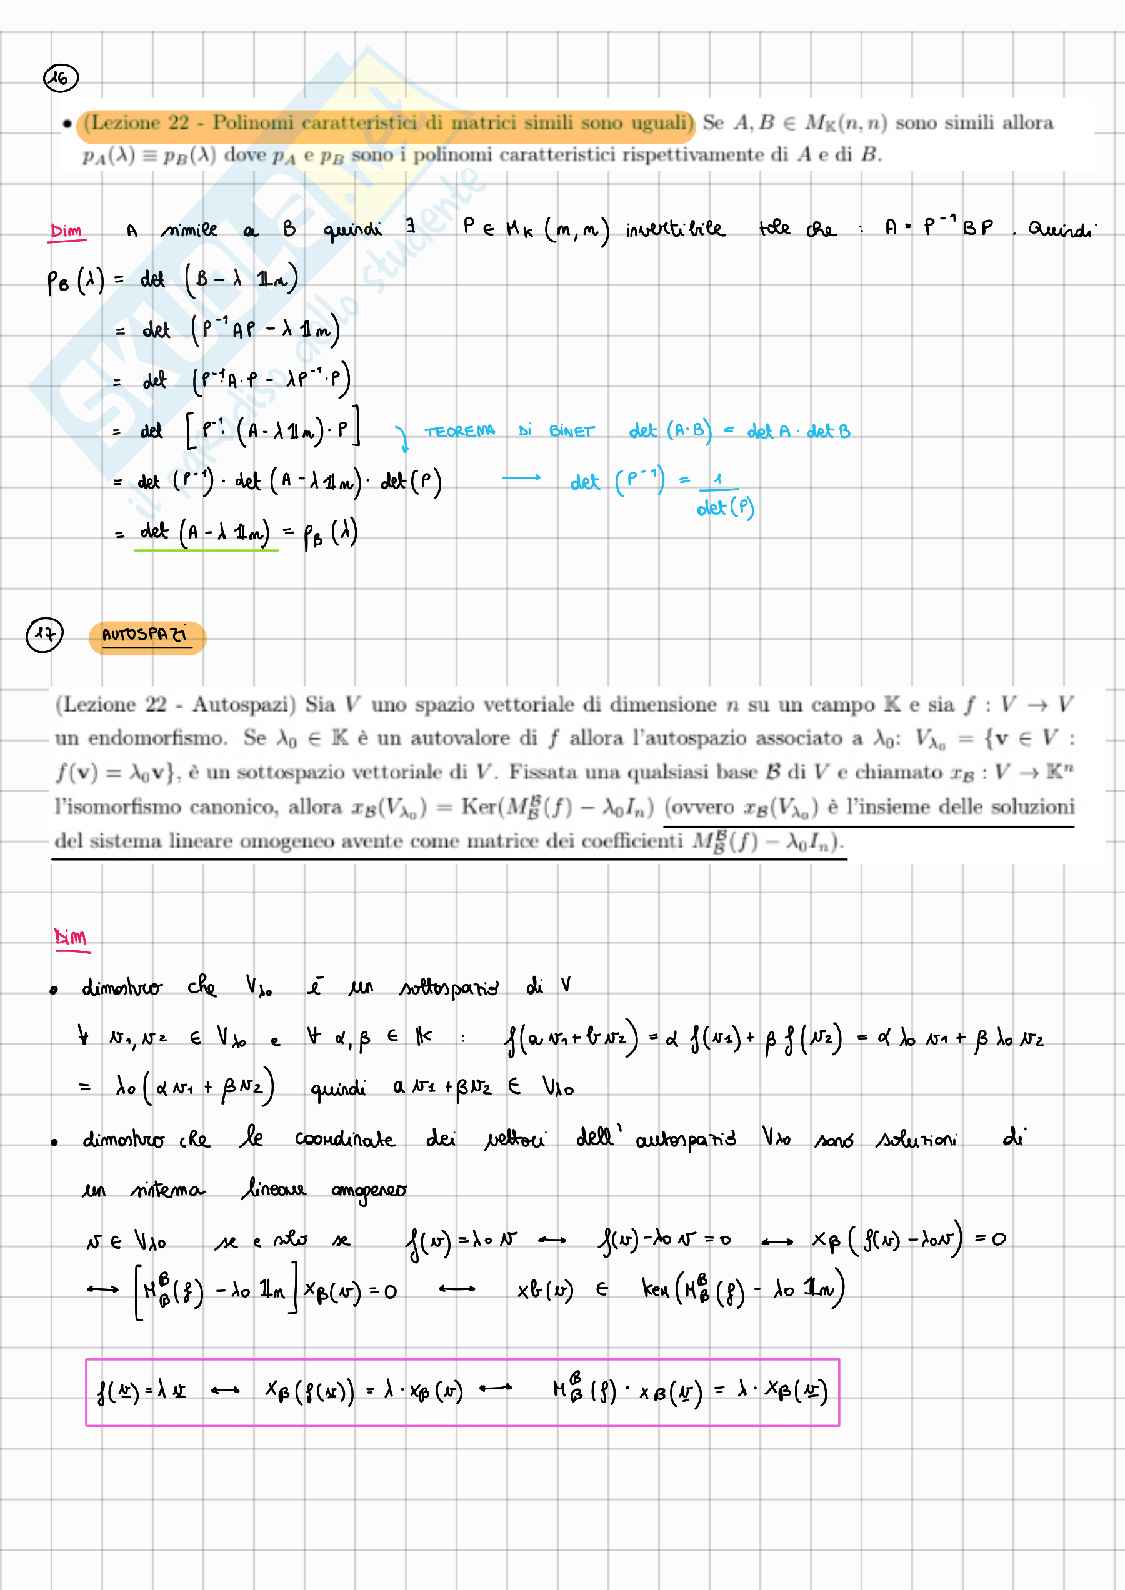 16
• (Lezione 22 - Polinomi caratteristici di matrici simili sono uguali) Se A, B ∈ M𝕂(n, n) sono simili allora
p_A(λ) ≡ p_B(λ) dove p_A e p_B sono i polinomi caratteristici rispettivamente di A e di B.
Dim A simile a B quindi ∃ P ∈ M_K (m, n) invertibile tale che : A = P⁻¹BP . Quindi
p_B (λ) = det (B - λ 𝟙n)
= det (P⁻¹AP - λ 𝟙m)
= det (P⁻¹A·P - λP⁻¹·P)
= det [P⁻¹· (A - λ𝟙m)· P] TEOREMA DI BINET det (A·B) = det A · det B
= det (P⁻¹) · det (A - λ 𝟙m) · det (P) ⟶ det (P⁻¹) = 1/det(P)
= det (A - λ 𝟙m) = p_B (λ)
17 AUTOSPAZI
(Lezione 22 - Autospazi) Sia V uno spazio vettoriale di dimensione n su un campo 𝕂 e sia f : V → V
un endomorfismo. Se λ₀ ∈ 𝕂 è un autovalore di f allora l'autospazio associato a λ₀: V_λ₀ = {v ∈ V :
f(v) = λ₀v}, è un sottospazio vettoriale di V. Fissata una qualsiasi base ℬ di V e chiamato x_B : V → 𝕂ⁿ
l'isomorfismo canonico, allora x_B(V_λ₀) = Ker(M_B^B(f) − λ₀I_n) (ovvero x_B(V_λ₀) è l'insieme delle soluzioni
del sistema lineare omogeneo avente come matrice dei coefficienti M_B^B(f) − λ₀I_n).
Dim
• dimostro che V_λ0 è un sottospazio di V
∀ v₁, v₂ ∈ V_λ0 e ∀ α, β ∈ K : f(a v₁ + b v₂) = α f(v₁) + β f(v₂) = α λ0 v₁ + β λ0 v₂
= λ0 (α v₁ + β v₂) quindi a v₁ + β v₂ ∈ V_λ0
• dimostro che le coordinate dei vettori dell' autospazio V_λ0 sono soluzioni di
un sistema lineare omogeneo
v ∈ V_λ0 se e solo se f(v) = λ0 v ⟷ f(v) - λ0 v = 0 ⟷ x_β (f(v) - λ0v) = 0
⟷ [M_β^β (f) - λ0 𝟙n] x_β (v) = 0 ⟷ xb(v) ∈ ker (M_β^β (f) - λ0 𝟙n)
f(v) = λ v ⟷ x_β (f(v)) = λ · x_β (v) ⟷ M_β^β (f) · x_β (v) = λ · x_β (v)
SKUOLA.net
il paradiso dello studente